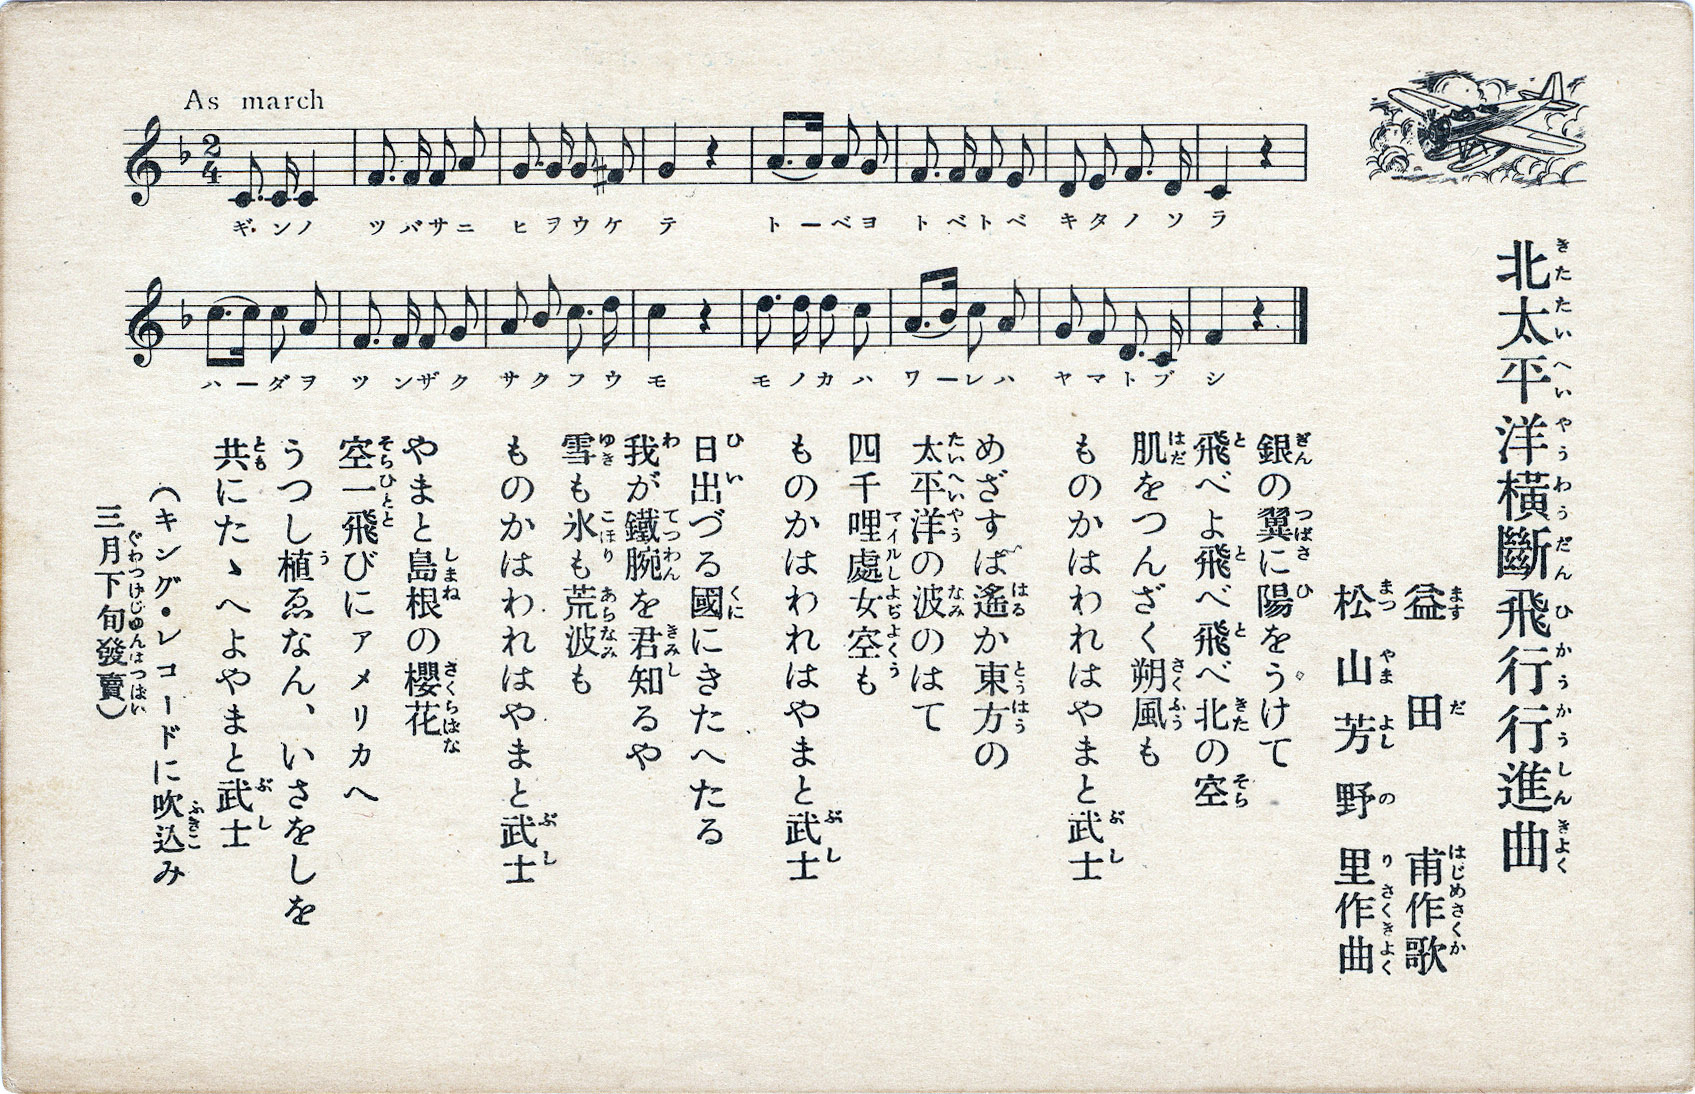 北太平洋橫斷飛行行進曲
益田甫作歌
松山芳野里作曲
As march
ギンノ ツバサニ ヒヲウケ テ トーベヨ トベトベ キタノソ ラ
ハーダヲ ツンザク サクフウ モ モノカハ ワーレハ ヤマトブ シ
銀の翼に陽をうけて
飛べよ飛べ飛べ北の空
肌をつんざく朔風も
ものかはわれはやまと武士
めざすは遙か東方の
太平洋の波のはて
四千哩處女空も
ものかはわれはやまと武士
日出づる國にきたへたる
我が鐵腕を君知るや
雪も氷も荒波も
ものかはわれはやまと武士
やまと島根の櫻花
空一飛びにアメリカへ
うつし植ゑなん、いさをしを
共にたゝへよやまと武士
(キング・レコードに吹込み
三月下旬發賣)